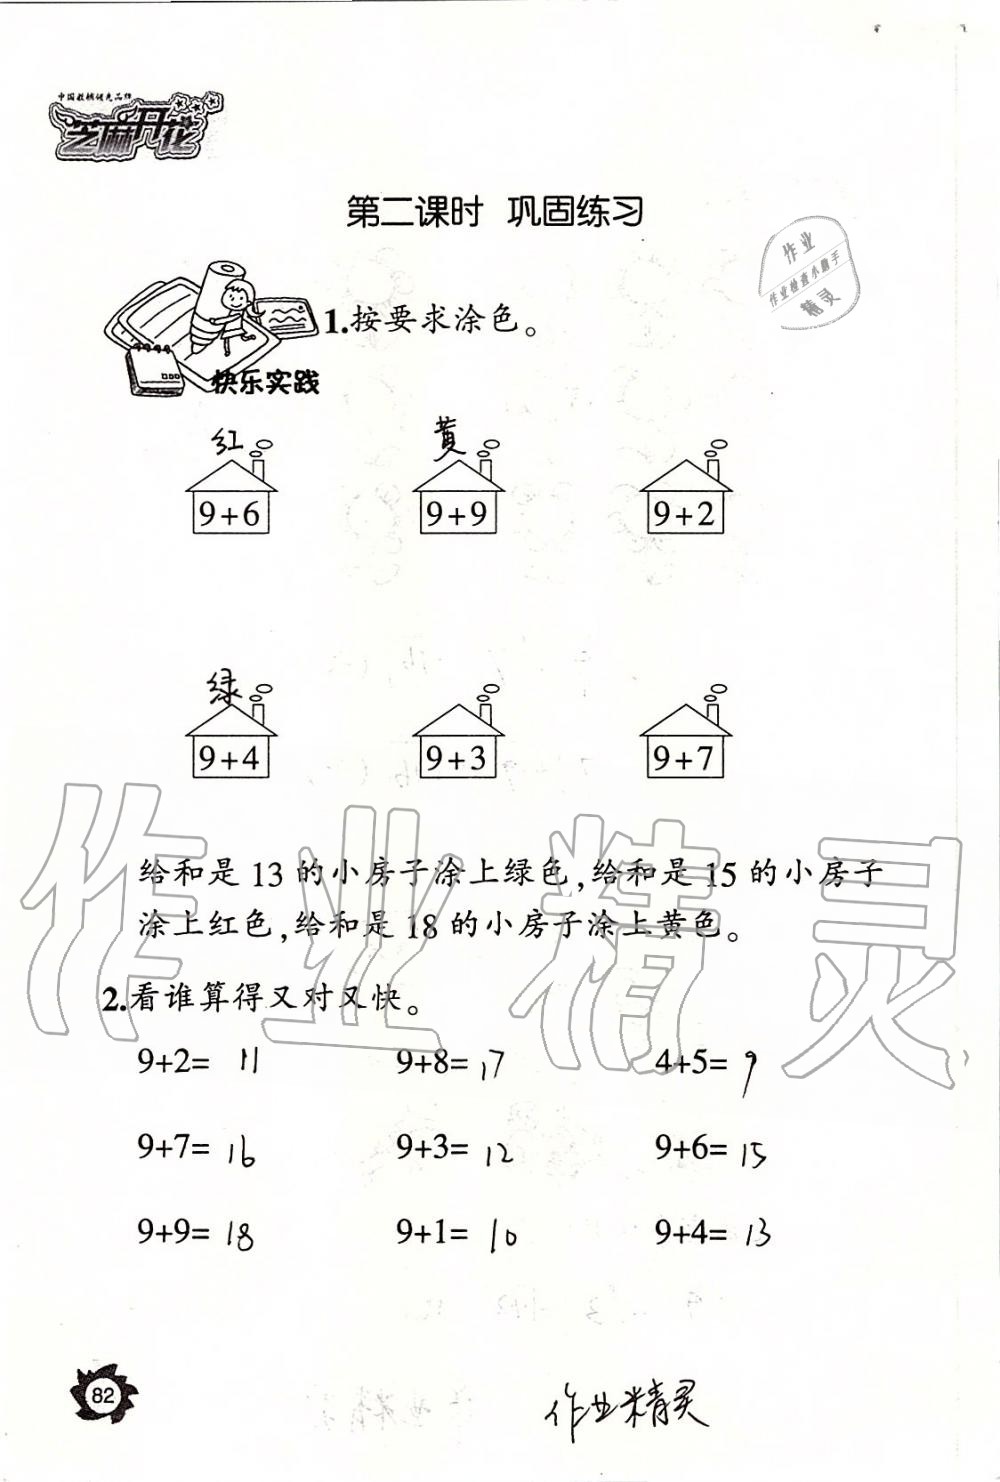 中国教辅领先品牌
芝麻开花
第二课时 巩固练习
作业
作业检查小助手
精灵
1.按要求涂色。
快乐实践
红 黄
9+6 9+9 9+2
绿
9+4 9+3 9+7
给和是 13 的小房子涂上绿色,给和是 15 的小房子
涂上红色,给和是 18 的小房子涂上黄色。
2.看谁算得又对又快。
9+2= 11 9+8= 17 4+5= 9
9+7= 16 9+3= 12 9+6= 15
9+9= 18 9+1= 10 9+4= 13
作业精灵
82
作业精灵